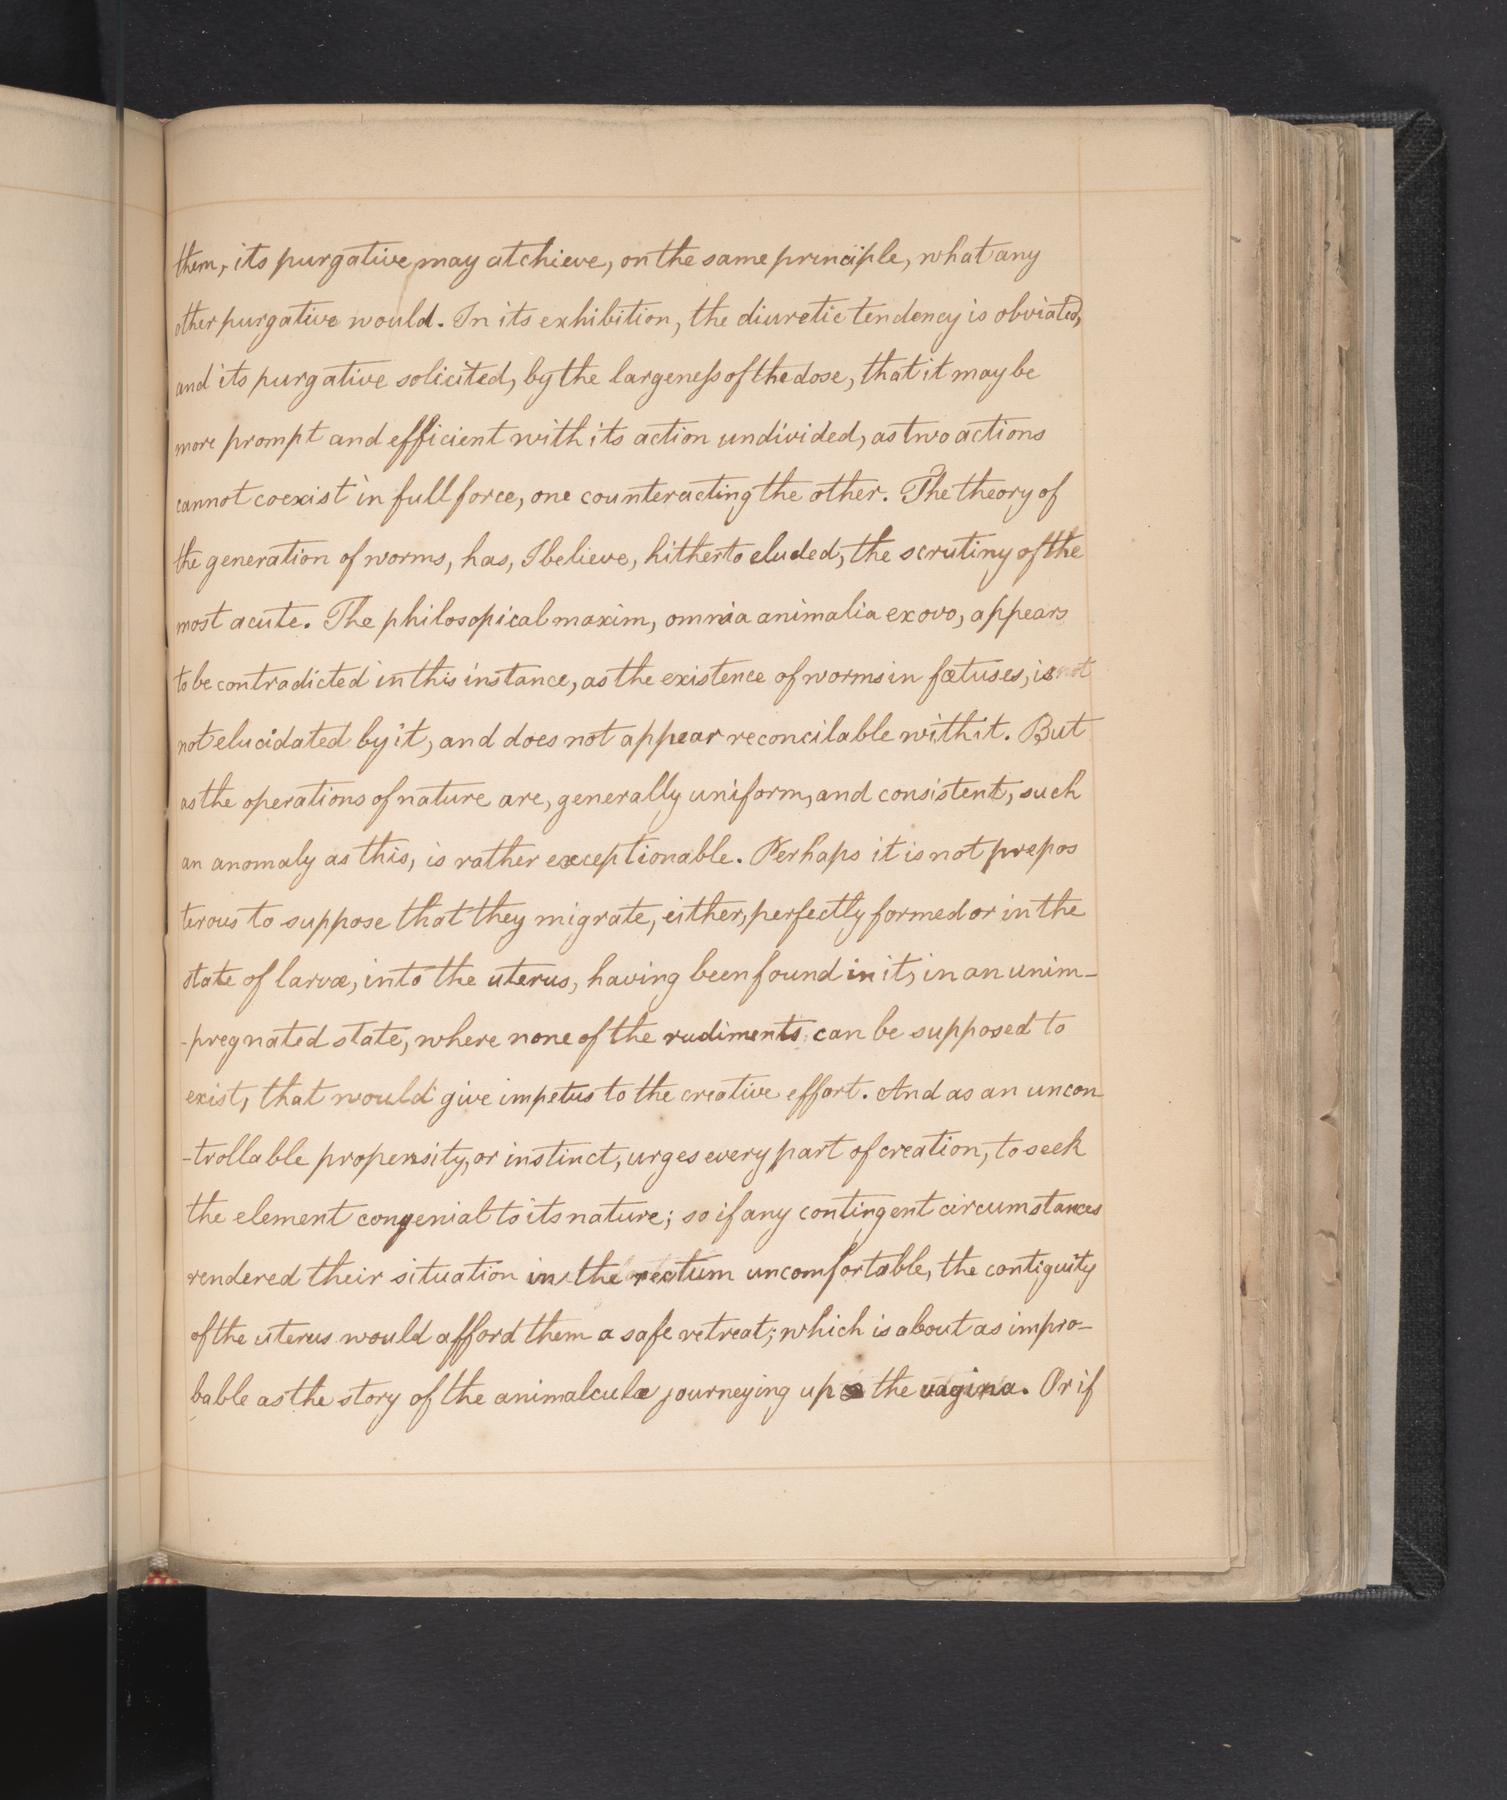 them, its purgative may atchieve, on the same principle, what any
other purgative would. In its exhibition, the diuretic tendency is obviated,
and its purgative solicited, by the largeneſs of the dose, that it may be
more prompt and efficient with its action undivided, as two actions
cannot coexist in full force, one counteracting the other. The theory of
the generation of worms, has, I believe, hitherto eluded, the scrutiny of the
most acute. The philosopical maxim, omnia animalia ex ovo, appears
to be contradicted in this instance, as the existence of worms in fœtuses, is not
not elucidated by it, and does not appear reconcilable with it. But
as the operations of nature are, generally uniform, and consistent, such
an anomaly as this, is rather exceptionable. Perhaps it is not prepos
terous to suppose that they migrate, either, perfectly formed or in the
state of larvæ, into the uterus, having been found in it, in an unim-
-pregnated state, where none of the rudiments can be supposed to
exist, that would give impetus to the creative effort. And as an uncon
-trollable propensity, or instinct, urges every part of creation, to seek
the element congenial to its nature; so if any contingent circumstances
rendered their situation in the rectum uncomfortable, the contiguity
of the uterus would afford them a safe retreat; which is about as impro-
bable as the story of the animalculæ journeying up the vagina. Or if